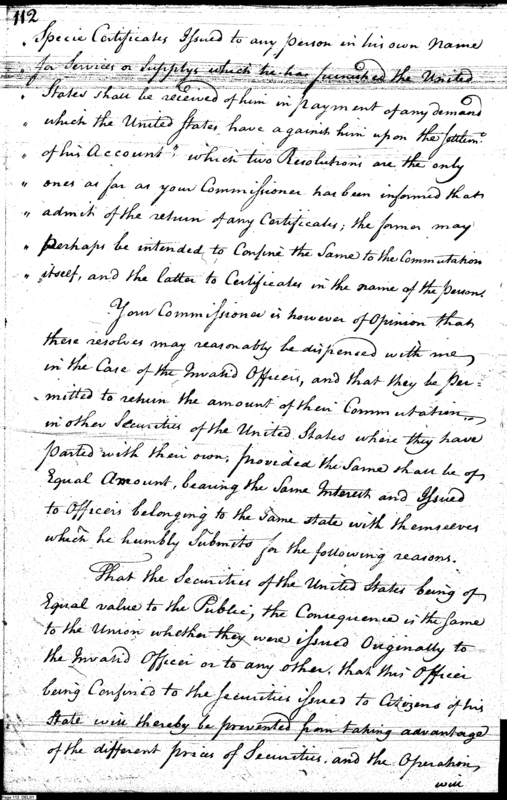 112
„ Specie Certificates Issued to any person in his own Name
for Services or Supplys which he has furnished the United
„ States shall be received of him in payment of any demand
„ which the United States have against him upon the settlemt
„ of his Account" which two Resolutions are the only
„ ones as far as your Commissioner has been informed that
„ admit of the return of any Certificates; the former may
„ perhaps be intended to Confine the Same to the Commutation
„ itself, and the latter to Certificates in the name of the Person.
Your Commissioner is however of Opinion that
these resolves may reasonably be dispenced with
in the Case of the Invalid Officers, and that they be per=
mitted to return the amount of their Commutation
in other Securities of the United States where they have
parted with their own, provided the Same shall be of
Equal Amount, bearing the Same Interest and Issued
to Officers belonging to the same state with themselves
which he humbly Submits for the following reasons.
That the Securities of the United States being of
Equal value to the Public, the Consequence is the same
to the Union whether they were issued Originally to
the Invalid Officer or to any other. that this Officer
being Confined to the Securities issued to Citizens of his
State will thereby be prevented from taking advantage
of the different prices of Securities. and the Operation
will